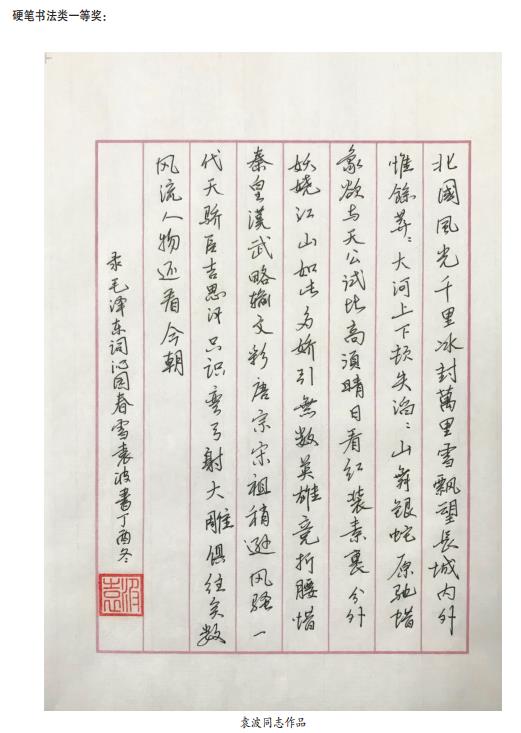 硬笔书法类一等奖：
北國風光千里冰封萬里雪飄望長城内外
惟餘莽〻大河上下顿失滔〻山舞銀蛇原驰蜡
象欲与天公试比高须晴日看红装素裹分外
妖娆江山如此多娇引無数英雄竞折腰惜
秦皇漢武略输文彩唐宗宋祖稍逊风骚一
代天骄臣吉思汗只识弯弓射大雕俱往矣数
风流人物还看今朝
录毛泽东词沁园春雪袁波書丁酉冬
袁波
袁波同志作品